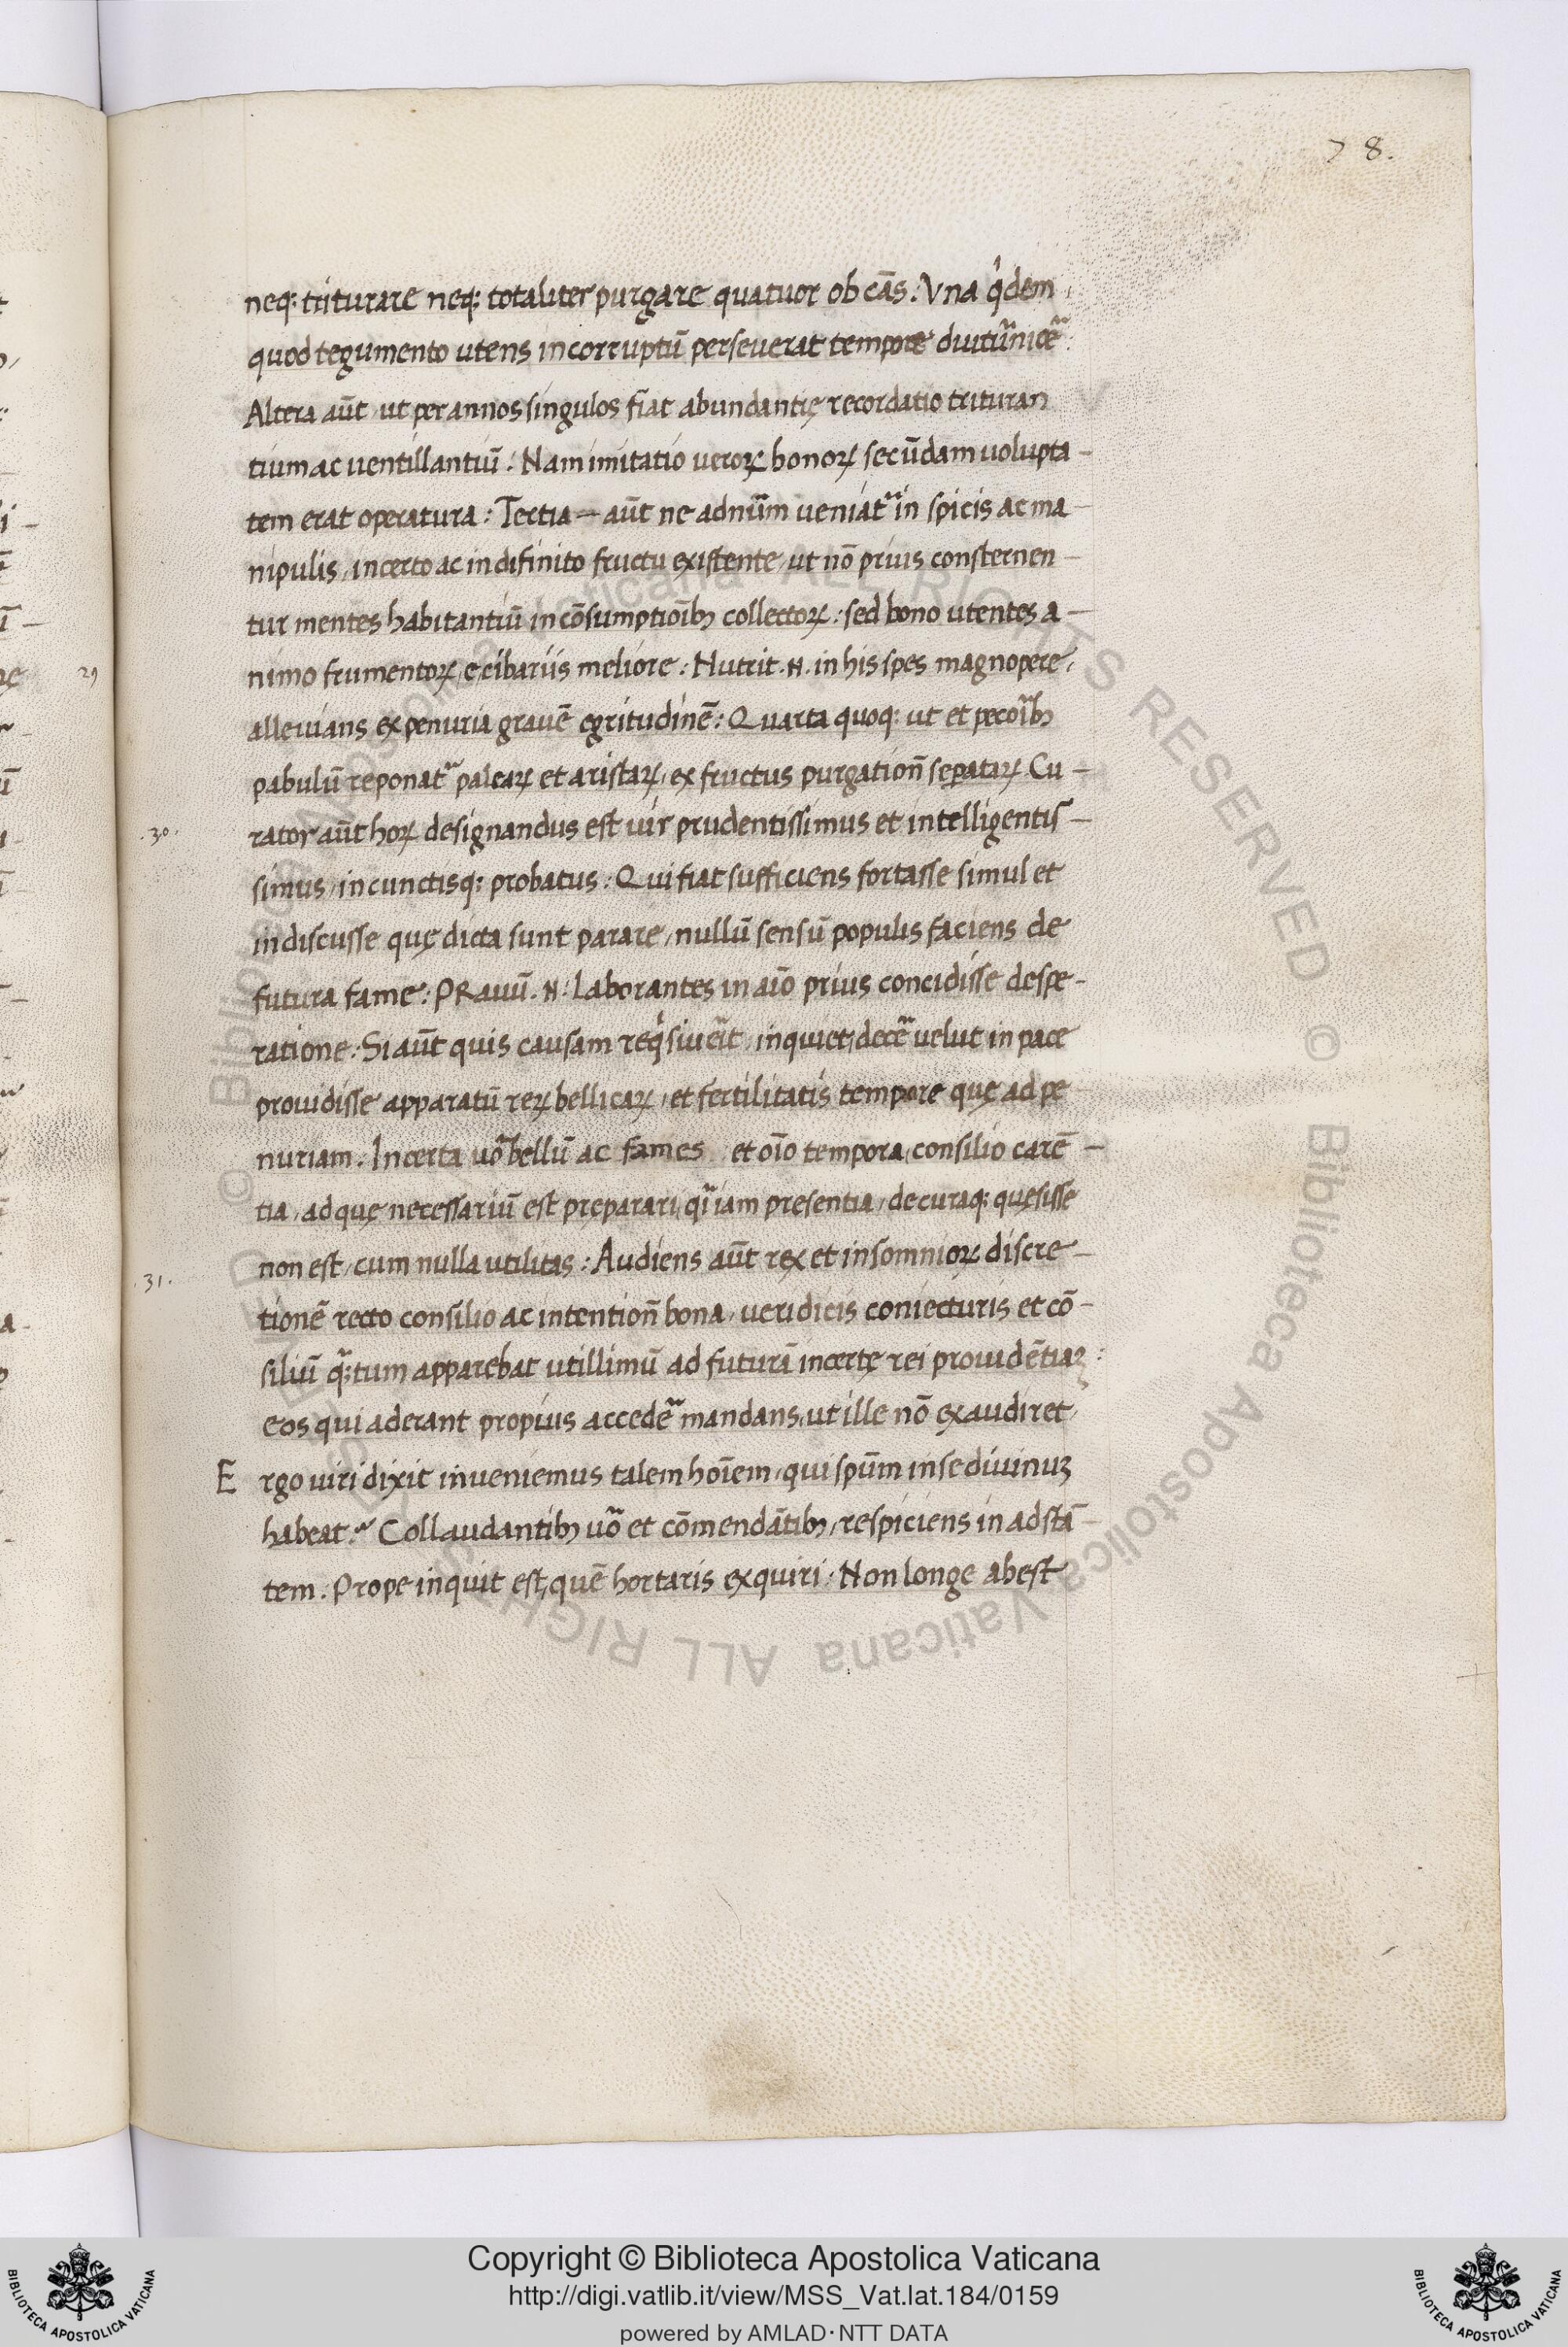 78.
neq: triturare neq: totaliter purgare quatuor ob cās: Vna q'dem
quod tegumento utens incorruptū perseverat tempore
Altera aūt ut per annos singulos fiat abundantię recordatio trituran
tium ac uentillantiū: Nam imitatio ueroꝝ bonoꝝ secūdam uolupta-
tem erat operatura: Tertia- aūt ne ad in spicis ac ma-
nipulis, incerto ac indifinito fructu existente, ut nō prius consternen-
tur mentes habitantiū in cōsumptioīb; collectoꝝ: sed bono utentes a-
nimo frumentoꝝ, e cibariis meliore: Nutrit .N. in his spes magnopere,
alleuians ex penuria grauē egritudinē: Quarta quoq: ut et pecoīb;
pabulū reponat᷑ paleaꝝ et aristaꝝ, ex fructus purgationē separataꝝ. Cu-
.30. rator aūt hoꝝ designandus est uir prudentissimus et intelligentis-
simus, in cunctisq: probatus: Qui fiat sufficiens fortasse simul et
indiscusse quę dicta sunt parare, nullū sensū populis faciens de
futura fame: PRauū .N. Laborantes in aīo prius concidisse despe-
ratione: Si aūt quis causam inquiet, uelut in pace
prouidisse apparatū reꝝ bellicaꝝ, et fertilitatis tempore quę ad pe-
nuriam. Incerta uō bellū ac fames et oīo tempora, consilio carē-
tia, ad quę necessariū est pręparari, iam presentia, de curaq: quęsisse
.31. non est, cum nulla utilitas: Audiens aūt rex et insomnioꝝ discre-
tionē recto consilio ac intentionē bona, ueridicis coniecturis et cō-
siliū tum apparebat utillimū ad futurā incertę rei prouidētiaꝫ:
eos qui aderant propius mandans, ut ille nō exaudiret,
Ergo uiri dixit inueniemus talem hoīem, qui spūm in se diuinuꝫ
habeat? Collaudantib; uō et cōmendātib;, respiciens in adstā-
tem. Prope inquit est, quē hortaris exquiri: Non longe abest
29
Copyright © Biblioteca Apostolica Vaticana
http://digi.vatlib.it/view/MSS_Vat.lat.184/0159
powered by AMLAD·NTT DATA
BIBLIOTECA APOSTOLICA VATICANA
BIBLIOTECA APOSTOLICA VATICANA
© Biblioteca Apostolica Vaticana ALL RIGHTS RESERVED